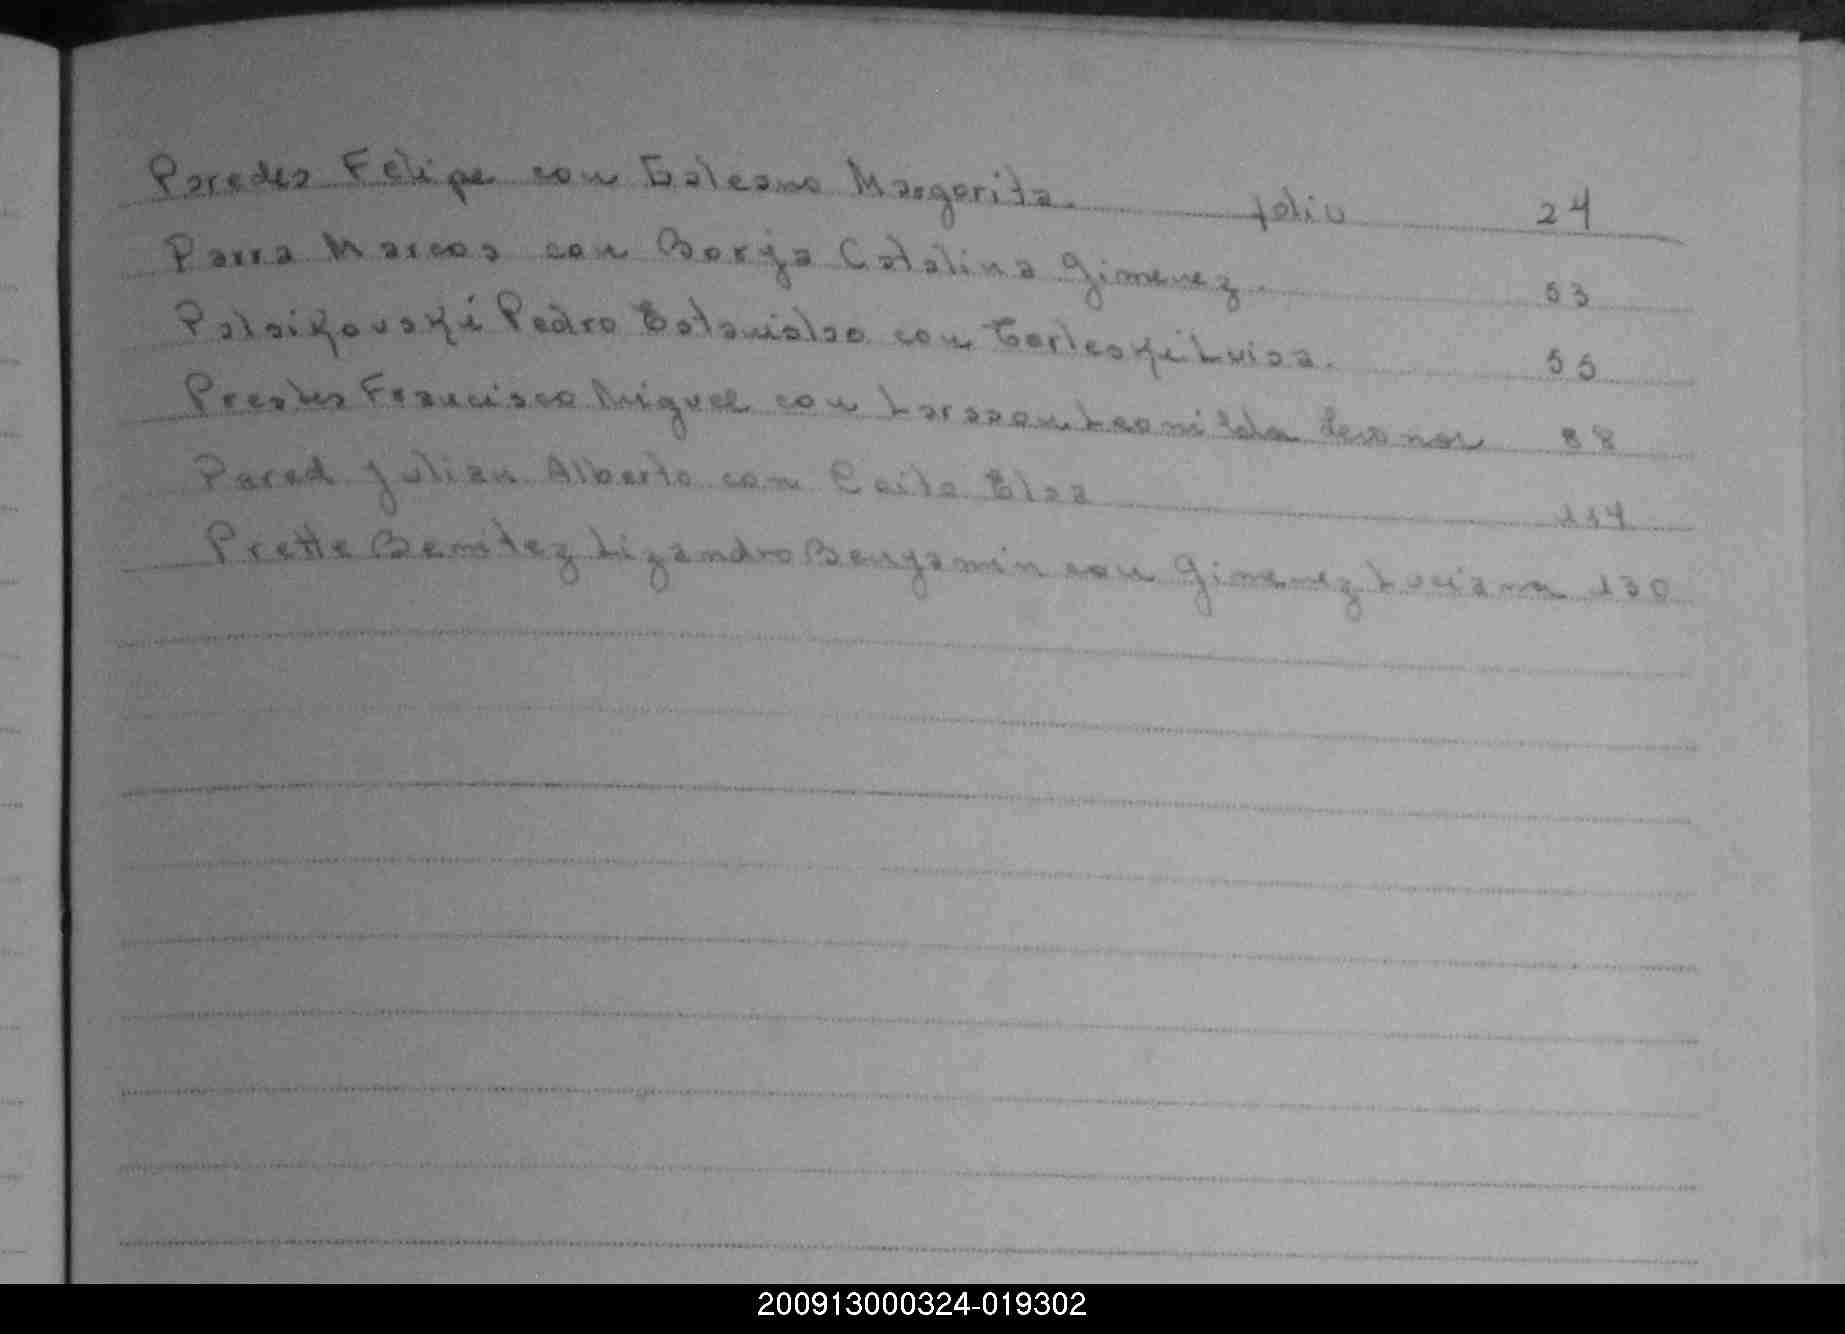 Paredes Felipe con Galeano Margarita. folio 24
Parra Marcos con Borja Catalina Gimenez. 53
Pedro Estanislao con Luisa. 55
Prestes Francisco Miguel con Larsson Leonilda Leonor 88
Pared Julian Alberto con Elsa 114
Prette Benitez Lizandro Benjamin con Gimenez Luciana 130
200913000324-019302